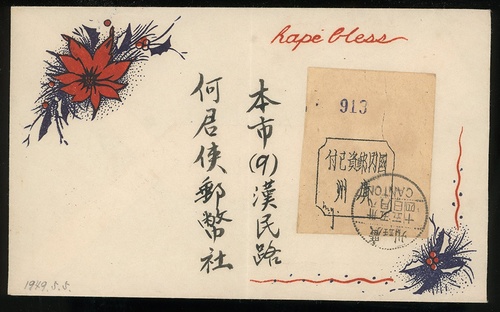 hape bless
913
國內郵資已付
廣州
CANTON
本市(9)漢民路
何君俠郵幣社
1949.5.5.